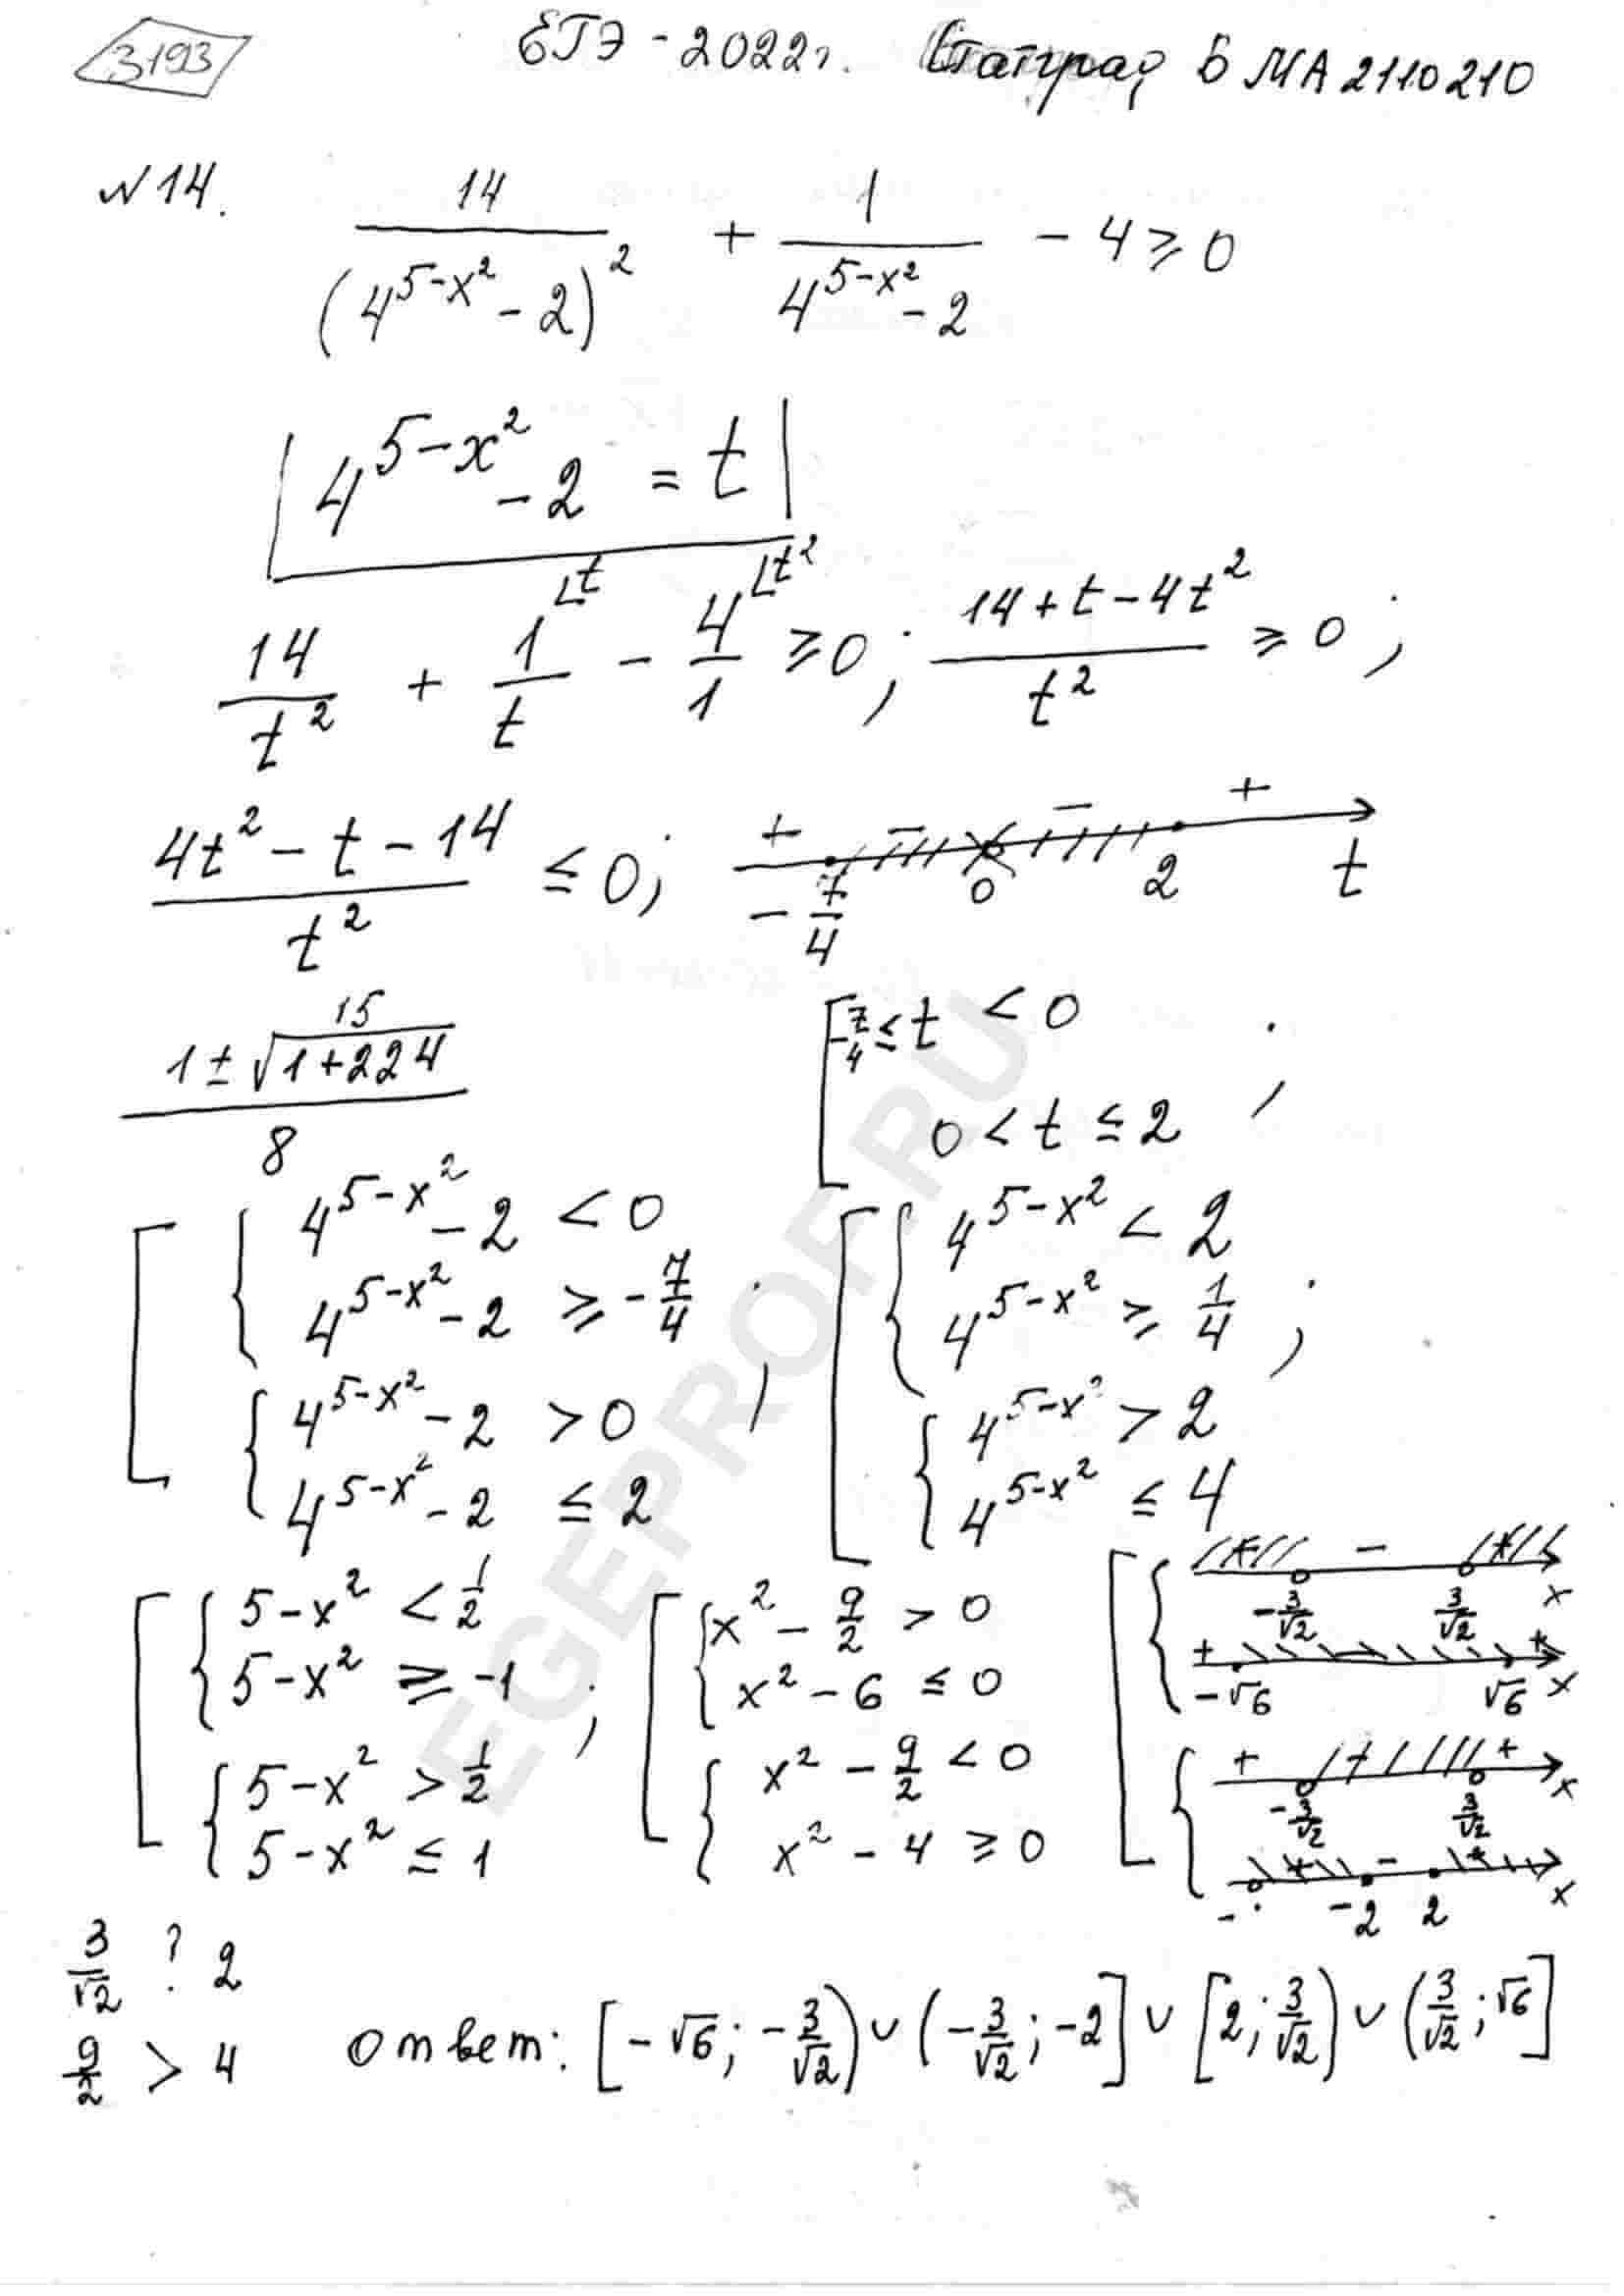 3193
ЕГЭ - 2022г. Статград БМА2110210
N14. 14/(4^(5-x²) - 2)² + 1/(4^(5-x²) - 2) - 4 ≥ 0
4^(5-x²) - 2 = t
14/t² + 1/t - 4/1 ≥ 0; (14 + t - 4t²)/t² ≥ 0;
∟t ∟t²
(4t² - t - 14)/t² ≤ 0; + - - + -7/4 0 2 t
(1 ± √(1+224))/8 15
[ -7/4 ≤ t < 0
0 < t ≤ 2 ;
[ { 4^(5-x²) - 2 < 0
4^(5-x²) - 2 ≥ -7/4
{ 4^(5-x²) - 2 > 0
4^(5-x²) - 2 ≤ 2 ;
[ { 4^(5-x²) < 2
4^(5-x²) ≥ 1/4
{ 4^(5-x²) > 2
4^(5-x²) ≤ 4 ;
[ { 5-x² < 1/2
5-x² ≥ -1
{ 5-x² > 1/2
5-x² ≤ 1 ;
[ { x² - 9/2 > 0
x² - 6 ≤ 0
{ x² - 9/2 < 0
x² - 4 ≥ 0
[ { + - + -3/√2 3/√2 x
+ - + -√6 √6 x
{ + - + -3/√2 3/√2 x
+ - + -2 2 x
3/√2 ? 2
9/2 > 4
Ответ: [-√6; -3/√2) ∪ (-3/√2; -2] ∪ [2; 3/√2) ∪ (3/√2; √6]
EGEPROF.RU